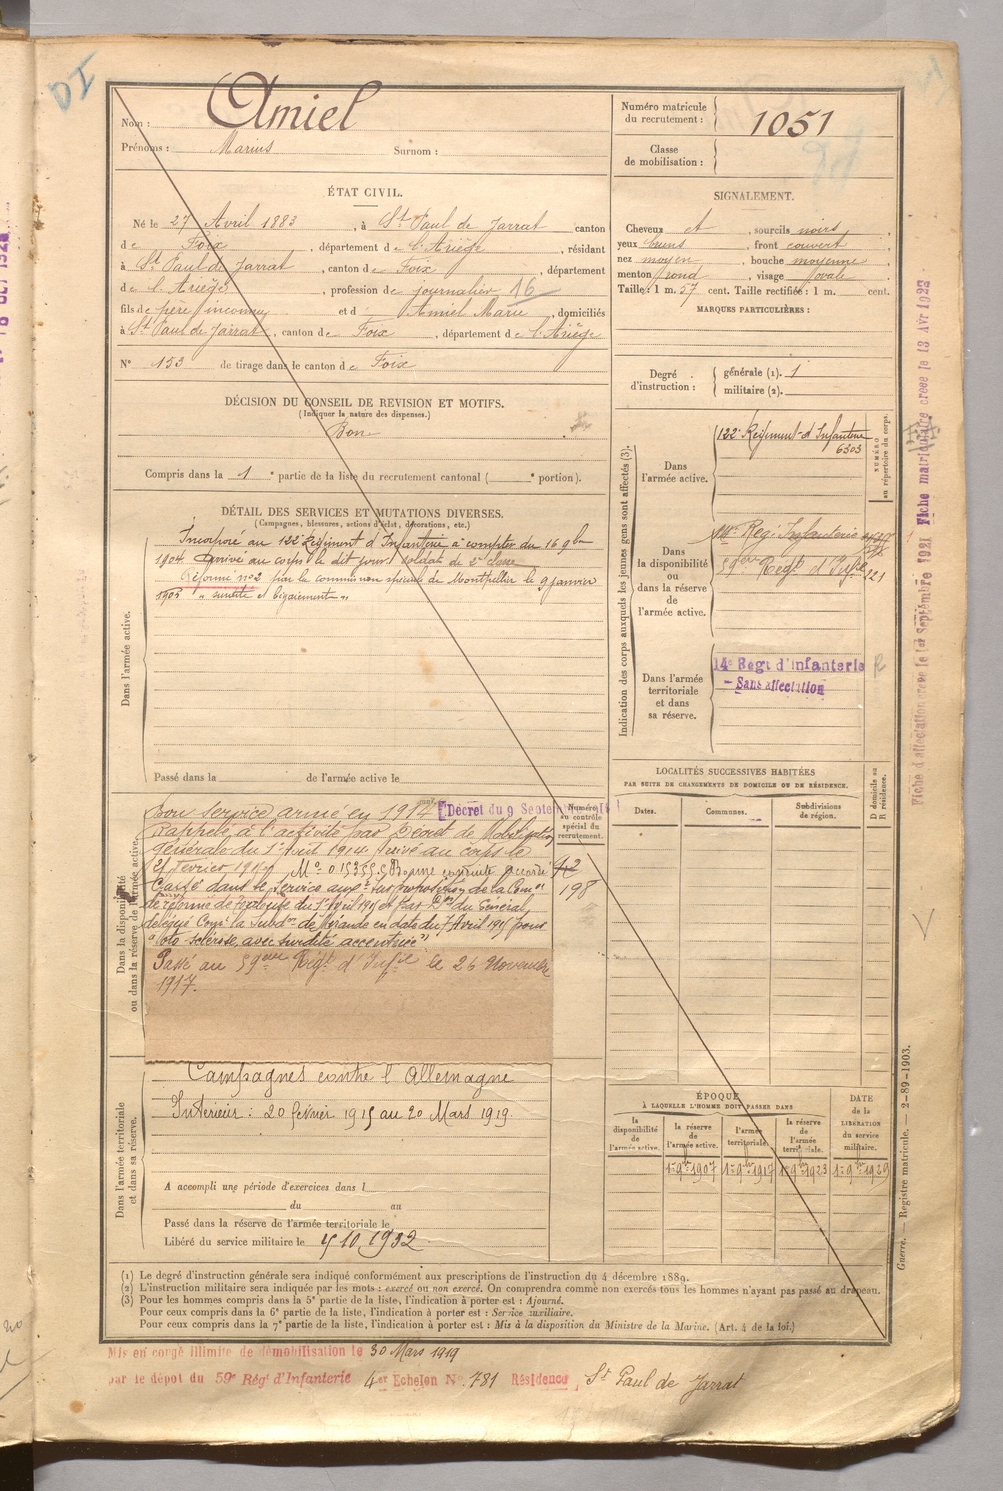 DI
Nom : Amiel
Prénoms : Marius Surnom :
Numéro matricule du recrutement : 1051
Classe de mobilisation :
ÉTAT CIVIL.
Né le 27 Avril 1883, à St Paul de Jarrat canton
de Foix, département de l'Ariège, résidant
à St Paul de Jarrat, canton de Foix, département
de l'Ariège, profession de journalier 16
fils de père inconnu et d Amiel Marie, domiciliés
à St Paul de Jarrat, canton de Foix, département de l'Ariège
N° 153 de tirage dans le canton de Foix
SIGNALEMENT.
Cheveux et, sourcils noirs,
yeux bruns, front couvert
nez moyen, bouche moyenne
menton rond, visage ovale
Taille : 1 m. 57 cent. Taille rectifiée : 1 m. cent.
MARQUES PARTICULIÈRES :
Degré d'instruction : générale (1). 1
militaire (2).
DÉCISION DU CONSEIL DE REVISION ET MOTIFS.
(Indiquer la nature des dispenses.)
Bon
Compris dans la 1e partie de la liste du recrutement cantonal ( e portion).
DÉTAIL DES SERVICES ET MUTATIONS DIVERSES.
(Campagnes, blessures, actions d'éclat, décorations, etc.)
Dans l'armée active.
Incorporé au 122e Régiment d'Infanterie à compter du 16 9bre
1904. Arrivé au corps le dit jour soldat de 2e classe
Réformé n°2 par la commission spéciale de Montpellier le 9 janvier
1905 "surdité et bégaiement".
Passé dans la de l'armée active le
Indication des corps auxquels les jeunes gens sont affectés (3).
NUMÉRO au répertoire du corps.
Dans l'armée active.
122e Régiment d'Infanterie
6303
Dans la disponibilité ou dans la réserve de l'armée active.
Rég. Infanterie
59ème Régt d'Infie 121
Dans l'armée territoriale et dans sa réserve.
14e Régt d'Infanterie
- Sans affectation
LOCALITÉS SUCCESSIVES HABITÉES
PAR SUITE DE CHANGEMENTS DE DOMICILE OU DE RÉSIDENCE.
Dates.
Communes.
Subdivisions de région.
D domicile ou R résidence.
Dans la disponibilité ou dans la réserve de l'armée active.
Numéro au contrôle spécial du recrutement.
Bon service armé en 1914 Décret du 9 Septembre
Rappelé à l'activité par Décret de Mobilisation
générale du 1er Août 1914. Arrivé au corps le
février Bonne conduite accordé
Classé dans le service auxre sur proposition de la Comon
de réforme de du 1er Avril 1915 et par Don du Général
délégué Comt la Subdon de Mirande en date du 7 Avril 1915 pour
"oto-sclérose, avec surdité accentuée"
198
Passé au 59ème Régt d'Infie le 26 Novembre
1917.
Dans l'armée territoriale et dans sa réserve.
Campagnes contre l'Allemagne
Intérieur : 20 février 1915 au 20 Mars 1919.
A accompli une période d'exercices dans l
du au
Passé dans la réserve de l'armée territoriale le
Libéré du service militaire le 10 1932
ÉPOQUE
À LAQUELLE L'HOMME DOIT PASSER DANS
la disponibilité de l'armée active.
la réserve de l'armée active.
l'armée territoriale.
la réserve de l'armée territoriale.
DATE de la LIBÉRATION du service militaire.
1er 9bre 1907 1er 9bre 1917 1er 9bre 1923 1er 9bre 1929
(1) Le degré d'instruction générale sera indiqué conformément aux prescriptions de l'instruction du 4 décembre 1889.
(2) L'instruction militaire sera indiquée par les mots : exercé ou non exercé. On comprendra comme non exercés tous les hommes n'ayant pas passé au drapeau.
(3) Pour les hommes compris dans la 5e partie de la liste, l'indication à porter est : Ajourné.
Pour ceux compris dans la 6e partie de la liste, l'indication à porter est : Service auxiliaire.
Pour ceux compris dans la 7e partie de la liste, l'indication à porter est : Mis à la disposition du Ministre de la Marine. (Art. 4 de la loi.)
Mis en congé illimité de démobilisation le 30 Mars 1919
par le dépôt du 59e Régt d'Infanterie 4er Echelon N° 781 Résidence St Paul de Jarrat
Fiche d'affectation créée le 1er Septembre 1921 Fiche matriculaire créée le 13 Avr 1922
Guerre. — Registre matricule. — 2-89-1903.